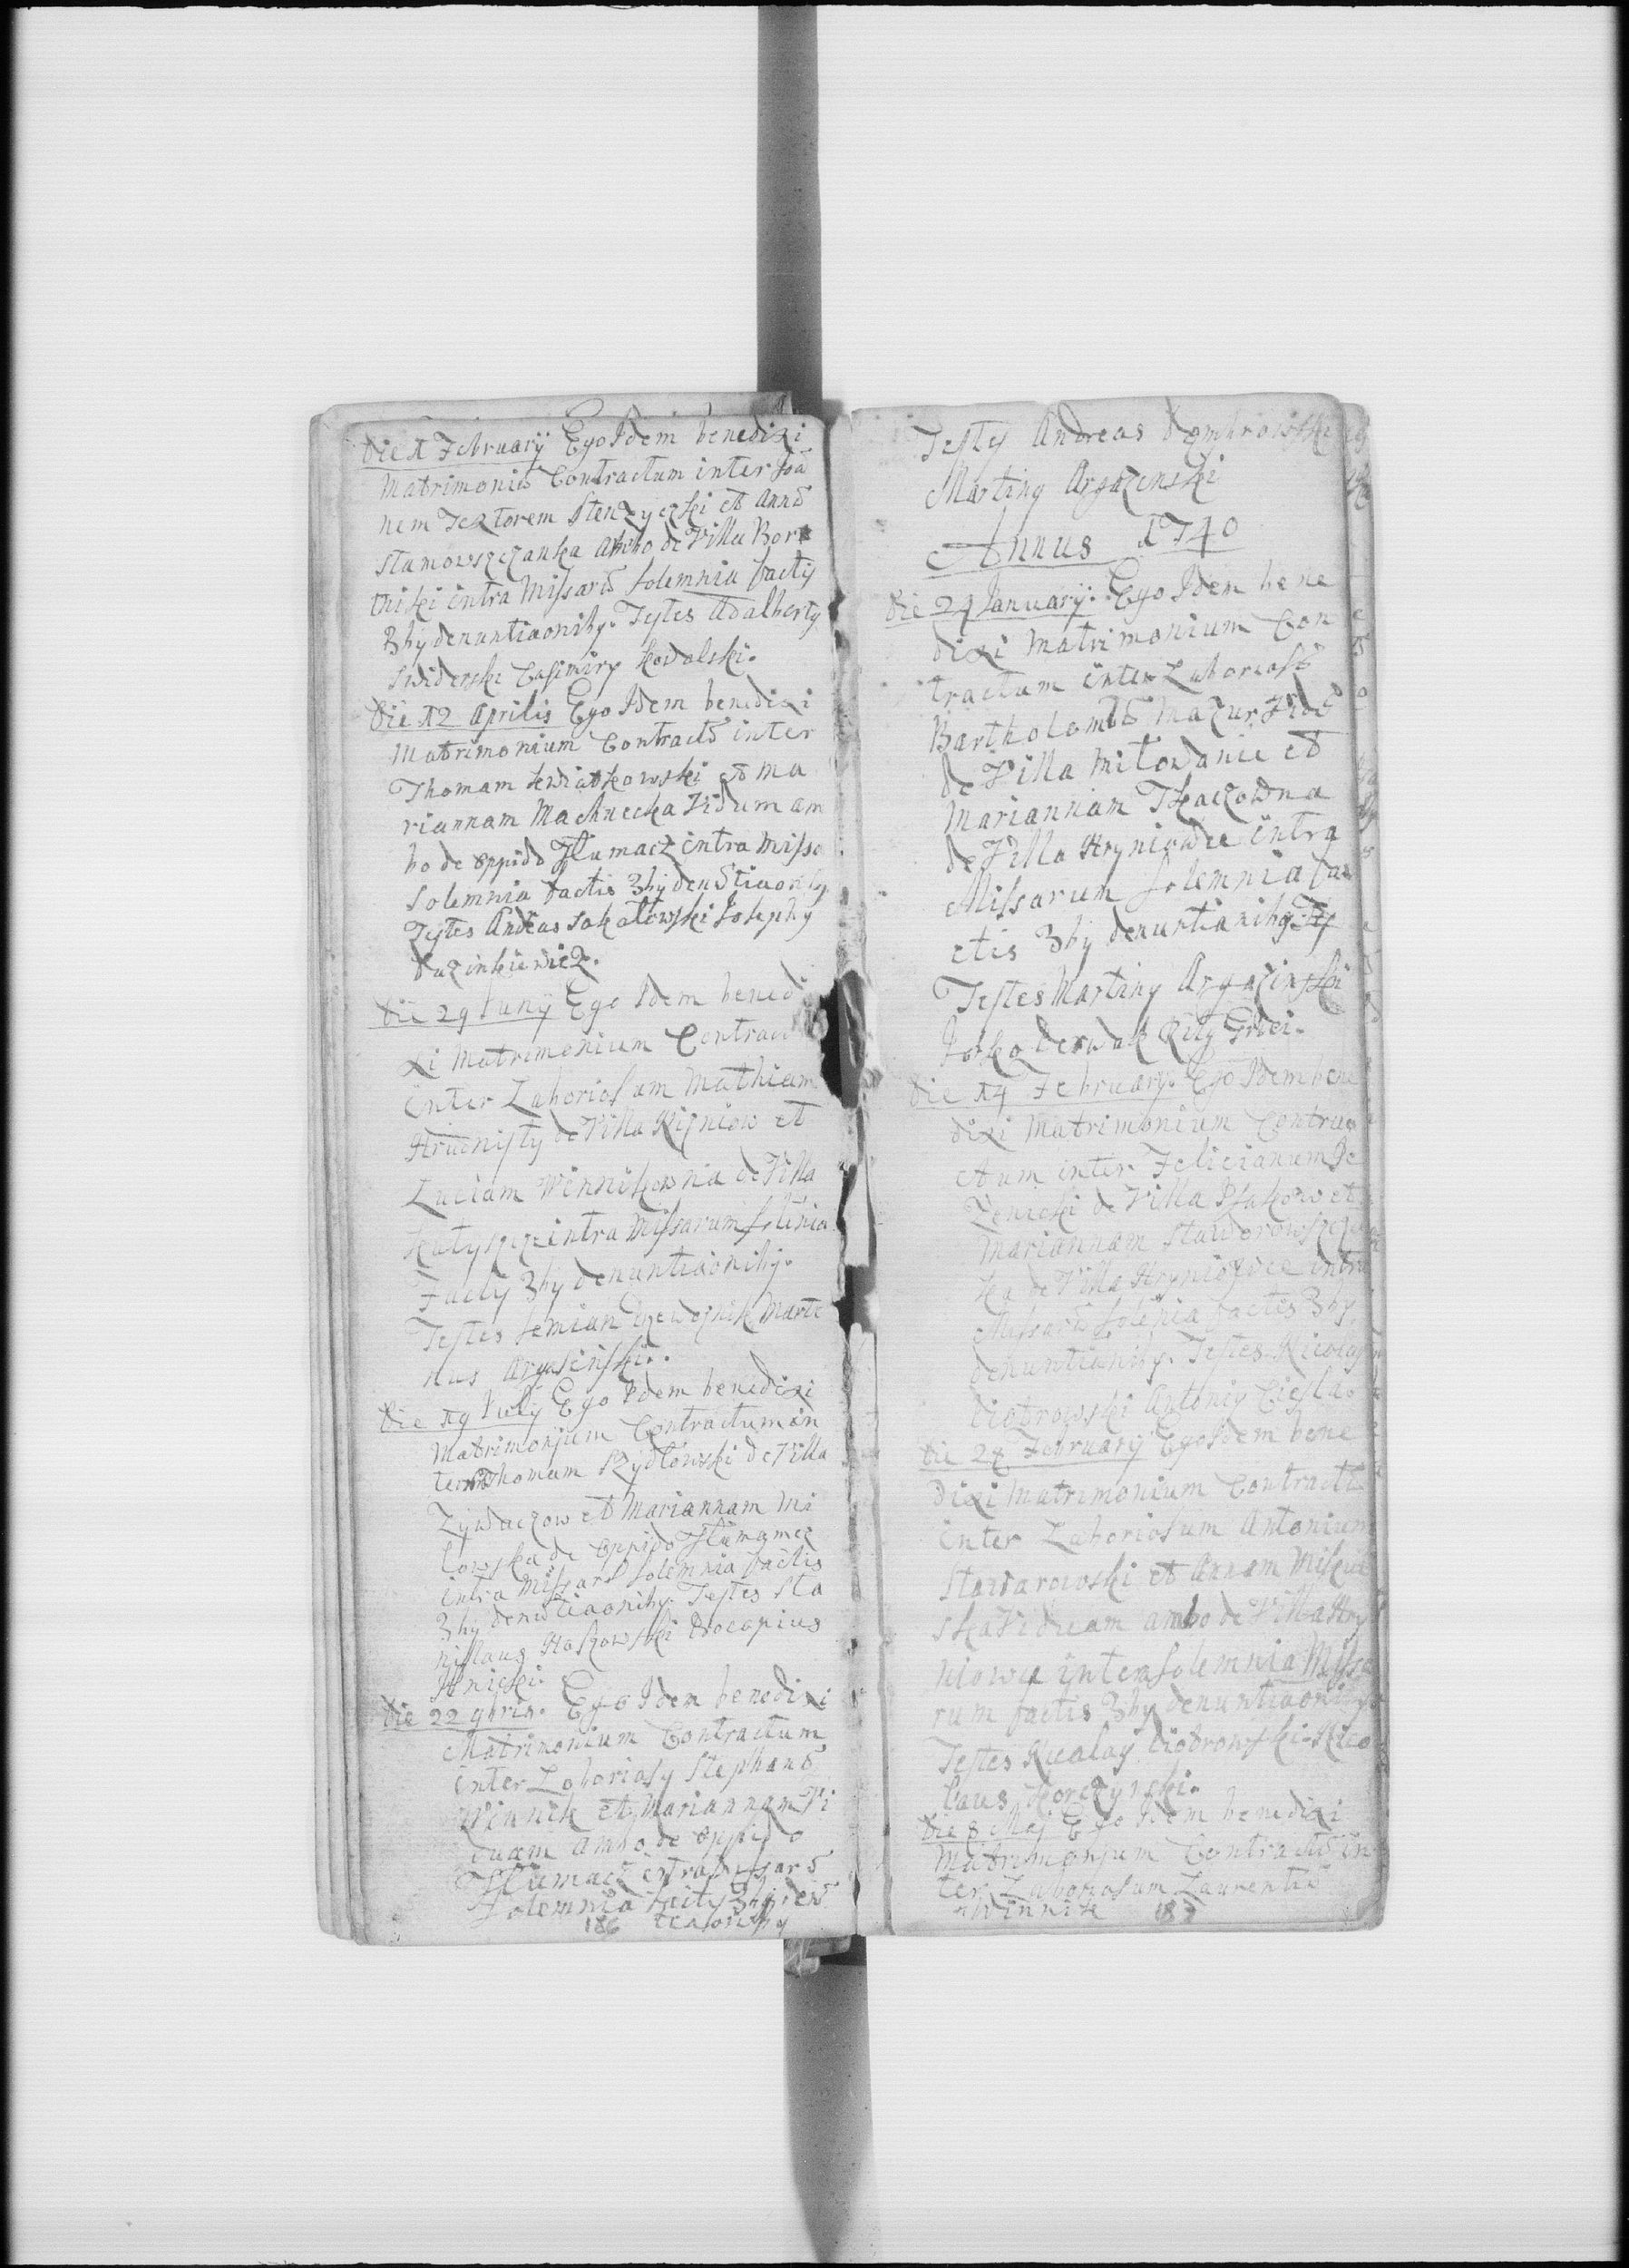 Die 1 February Ego Idem benedixi
Matrimoniũ Contractum inter Joã
nem Textorem Stenzyczki et Annã
Stamowszczanka Ambo de Villa Bor
thiki intra Missarũ solemnia factis
3bg denuntiaonibg. Testes Adalbertg
Swiderski Casimirg Kowalski.
Die 12 Aprilis Ego Idem benedixi
Matrimonium Contractũ inter
Thomam Kwiatkowski et Ma
riannam Machnecka Viduam am
bo de oppido Tłumacz intra Missa
Solemnia factis 3bg denũtiaonibg
Testes Andeas Sakałowski Josephg
Buzinkiewicz.
Die 29 Juny Ego Idem benedi
xi Matrimonium Contract
inter Laboriosum Mathiam
de Villa et
Luciam Winnikowna de Villa
intra Missarum solẽnia
Factg 3bg denuntiaonibg.
Testes Semian Marti
nus Argasinski.
Die 19 July Ego Idem benedixi
Matrimonjum Contractum in
ter Thomam Szydłowski de Villa
Zywaczow et Mariannam Mi
lowska de oppido Tłumacz
intra Missarũ solemnia factis
3bg denũtiaonibg. Testes Sta
nislaus Procopius
Ilnicki.
Die 22 9bris. Ego Idem benedixi
Matrimonium Contractum
inter Laboriosg Stephanũ
Winnik et Mariannam Vi
duam Ambo de oppido
Tłumacz intra Missarũ
Solemnia factg 3bg denũ
186 tiaonibg
Testg Andreas Dombrowski
Marting Argazenski
Annus 1740
Die 24 January. Ego Idem bene
dixi Matrimonium Con
tractum inter Laboriosũ
Bartholomeũ Mazur Vidũ
de Villa Miłowanie et
Mariannam Tkaczowna
de Villa Hryniowce intra
Missarum solemnia fa
ctis 3bg denuntianibg
Testes Marting Argazinski
Ritg Grĕci.
Die 14 February. Ego Idem bene
dixi Matrimonium Contra
ctum inter Felicianum Je
Zenicki de Villa et
Mariannam
ka de Villa Hryniowce intra
Missarũ solẽnia factis 3bg
denuntianibg. Testes Nicolag
Piotrowski Antonig Ciesla.
Die 28 February Ego Idem bene
dixi Matrimonium Contractũ
inter Laboriosum Antonium
Stawarowski et Annam
ska Viduam ambo de Villa Hry
niowce inter solemnia Missa
rum factis 3bg denuntiaonibg
Testes Nicolag Piotrowski Nico
laus Korczynski.
Die 8 Maj Ego Idem benedixi
Matrimonjum Contractũ in
ter Laboriosum Laurentiũ
Winnik 187